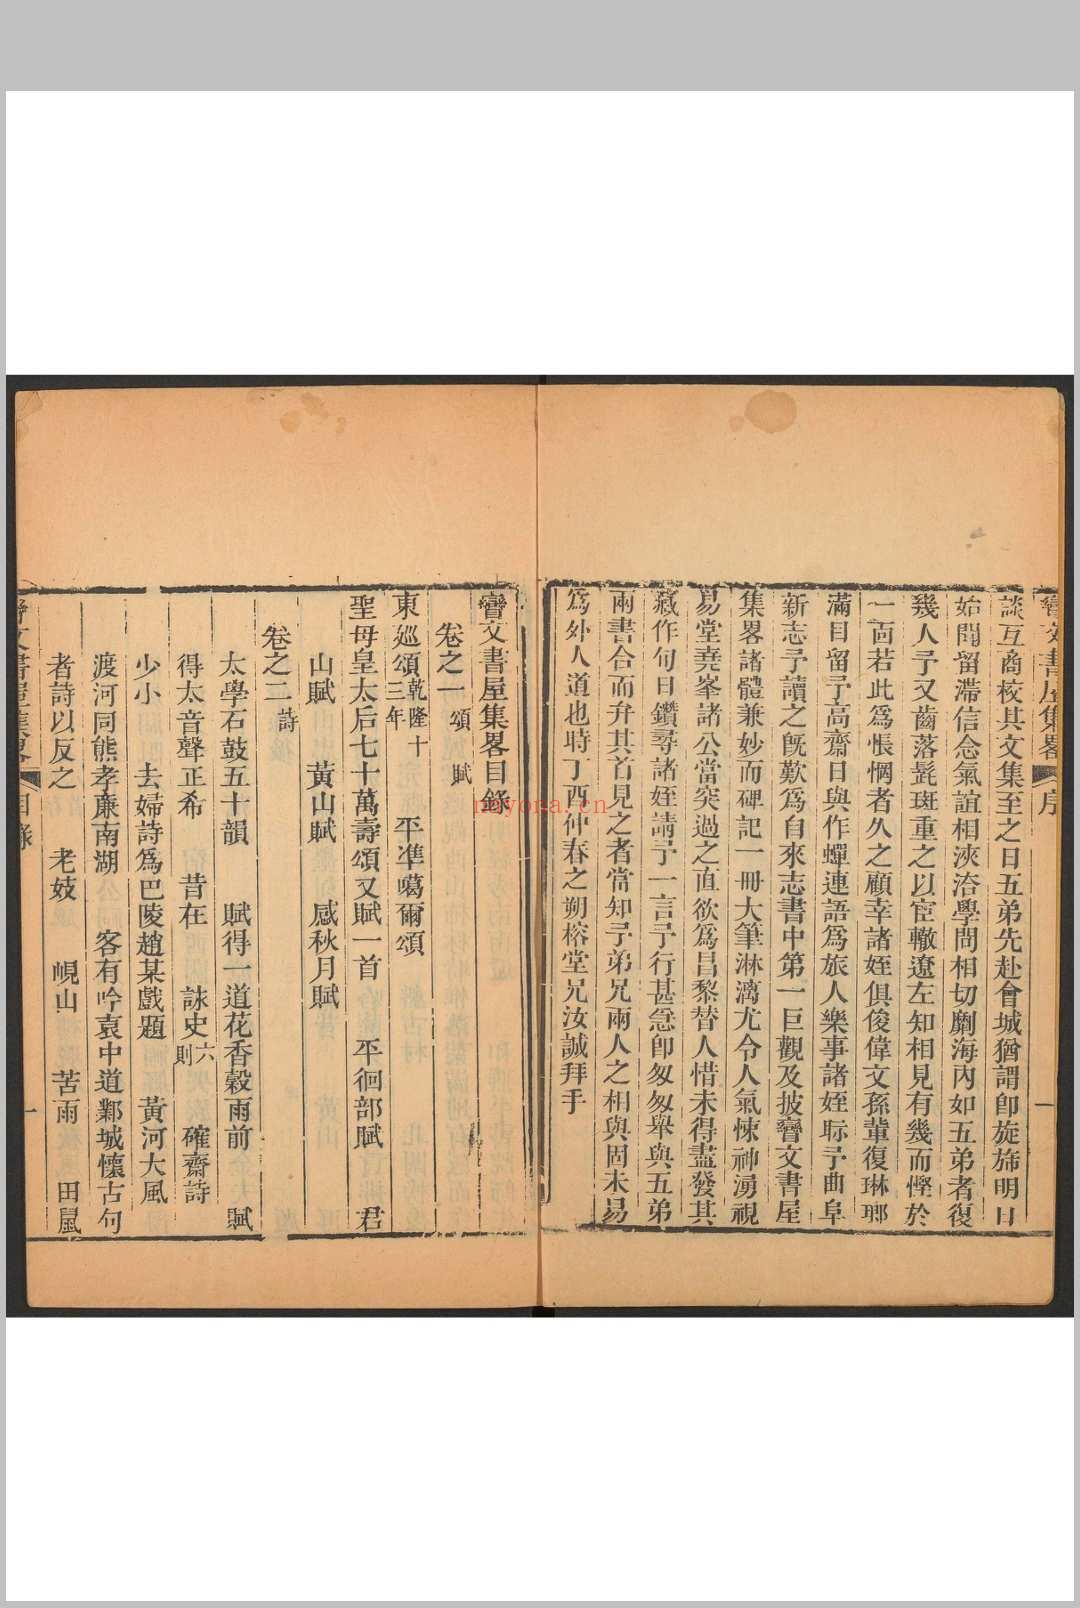 談互商校其文集至之日五弟先赴會城猶謂卽旋斾明日
始聞留滯信念氣誼相浹洽學問相切劘海內如五弟者復
幾人予又齒落髭斑重之以宦轍遼左知相見有幾而慳於
一面若此爲悵惘者久之顧幸諸姪俱俊偉文孫輩復琳瑯
滿目留予高齋日與作蟬連語爲旅人樂事諸姪眎予曲阜
新志予讀之旣歎爲自來志書中第一巨觀及披響文書屋
集畧諸體兼妙而碑記一冊大筆淋漓尤令人氣悚神湧視
易堂堯峯諸公當突過之直欲爲昌黎替人惜未得盡發其
藏作句日鑽尋諸姪請予一言予行甚急卽匆匆舉與五弟
兩書合而弁其首見之者當知予弟兄兩人之相與固未易
爲外人道也時丁酉仲春之朔榕堂兄汝誠拜手
文書屋集畧 序 一
文書屋集畧目錄
卷之一 頌 賦
東巡頌 乾隆十三年 平準噶爾頌
聖母皇太后七十萬壽頌又賦一首 平徊部賦 君
山賦 黃山賦 感秋月賦
卷之二 詩
太學石鼓五十韻 賦得一道花香穀雨前 賦
得太音聲正希 昔在 詠史 六則 確齋詩
少小 去婦詩爲巴陵趙某戲題 黃河大風
渡河同熊孝亷南湖 客有吟袁中道鄴城懷古句
者詩以反之 老妓 峴山 苦雨 田鼠
文書屋集畧 目錄 一
nayona.cn